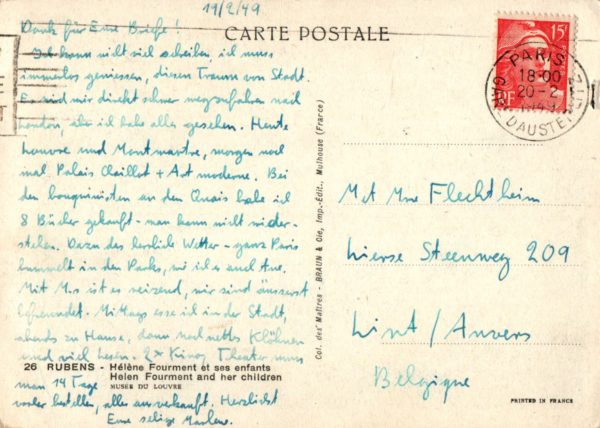 19/2/49
Dank für Eure Briefe!
Ich kann nicht viel schreiben, ich muss
immerlos geniessen, diesen Traum von Stadt.
Es wird mir direkt schwer wegzufahren nach
London, aber ich habe alles gesehen. Heute
Louvre und Montmartre, morgen noch
mal Palais Chaillot + Art moderne. Bei
den bouquinisten an den Quais habe ich
8 Bücher gekauft - man kann nicht wieder-
stehen. Dazu das herrliche Wetter - ganz Paris
bummelt in den Parks, wie ich es auch tue.
Mit M. ist es reizend, wir sind äusserst
befreundet. Mittags esse ich in der Stadt,
abends zu Hause, dann noch nettes Klöhnen
und viel lesen. 2x Kino, Theater muss
man 14 Tage
vorher bestellen, alles ausverkauft. Herzlichst
Eure selige
26 RUBENS - Hélène Fourment et ses enfants
Helen Fourment and her children
MUSÉE DU LOUVRE
CARTE POSTALE
Col. des Maîtres - BRAUN & Cie, Imp.-Édit., Mulhouse (France)
15F
RF
PARIS
18-00
20-2
1949
GARE D'AUSTERLITZ
Mr Flechtheim
Lierse Steenweg 209
Lint/Anvers
Belgique
PRINTED IN FRANCE